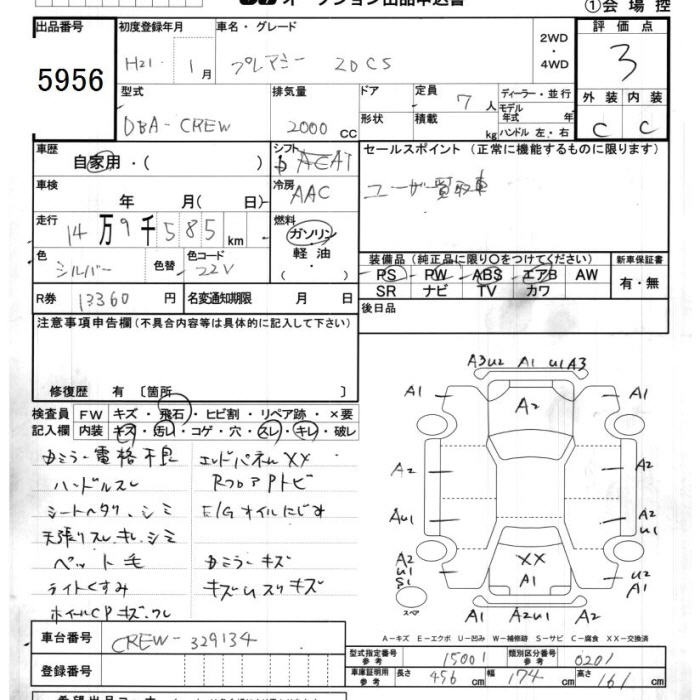 オークション出品申込書
①会場控
出品番号 5956
初度登録年月 H21. 1月
車名・グレード プレマシー 20CS
2WD・4WD
評価点 3
型式 DBA-CREW
排気量 2000 CC
ドア 形状
定員 7人
積載 kg
ディーラー・並行
モデル年式 年
ハンドル 左・右
外装 C 内装 C
車歴 自家用・( )
シフト AEAT
冷房 AAC
車検 年 月( 日)
走行 14万9千585km
燃料 ガソリン・軽油
色 シルバー 色替 色コード 22V
R券 13360円 名変通知期限 月 日
セールスポイント (正常に機能するものに限ります)
ユーザー買取車
装備品 (純正品に限り○をつけてください)
PS PW ABS エアB AW
SR ナビ TV カワ
新車保証書 有・無
後日品
注意事項申告欄(不具合内容等は具体的に記入して下さい)
修復歴 有〔箇所 〕
検査員記入欄
FW キズ・飛石・ヒビ割・リペア跡・×要
内装 キズ・汚レ・コゲ・穴・スレ・キレ・破レ
カミラー電格不良 エンドパネルXX
ハンドルスレ RフロアPトビ
シートヘタリ、シミ E/Gオイルにじみ
天張りスレ、キレ、シミ
ペット毛 カミラーキズ
ライトくすみ キズムスリキズ
ホイールCPキズ、ワレ
A3U2 A1 U1A3
A1 A2 A1
A2 A2
AU1 A2U1
A2U1S1 XX A1 U2A1
スペア
A1 A2U1 A1
A−キズ E−エクボ U−凹み W−補修跡 S−サビ C−腐食 XX−交換済
車台番号 CREW-329134
登録番号
型式指定番号 参考 15001 類別区分番号 参考 0201
車庫証明用 参考 長さ 456cm 幅 174cm 高さ 161cm